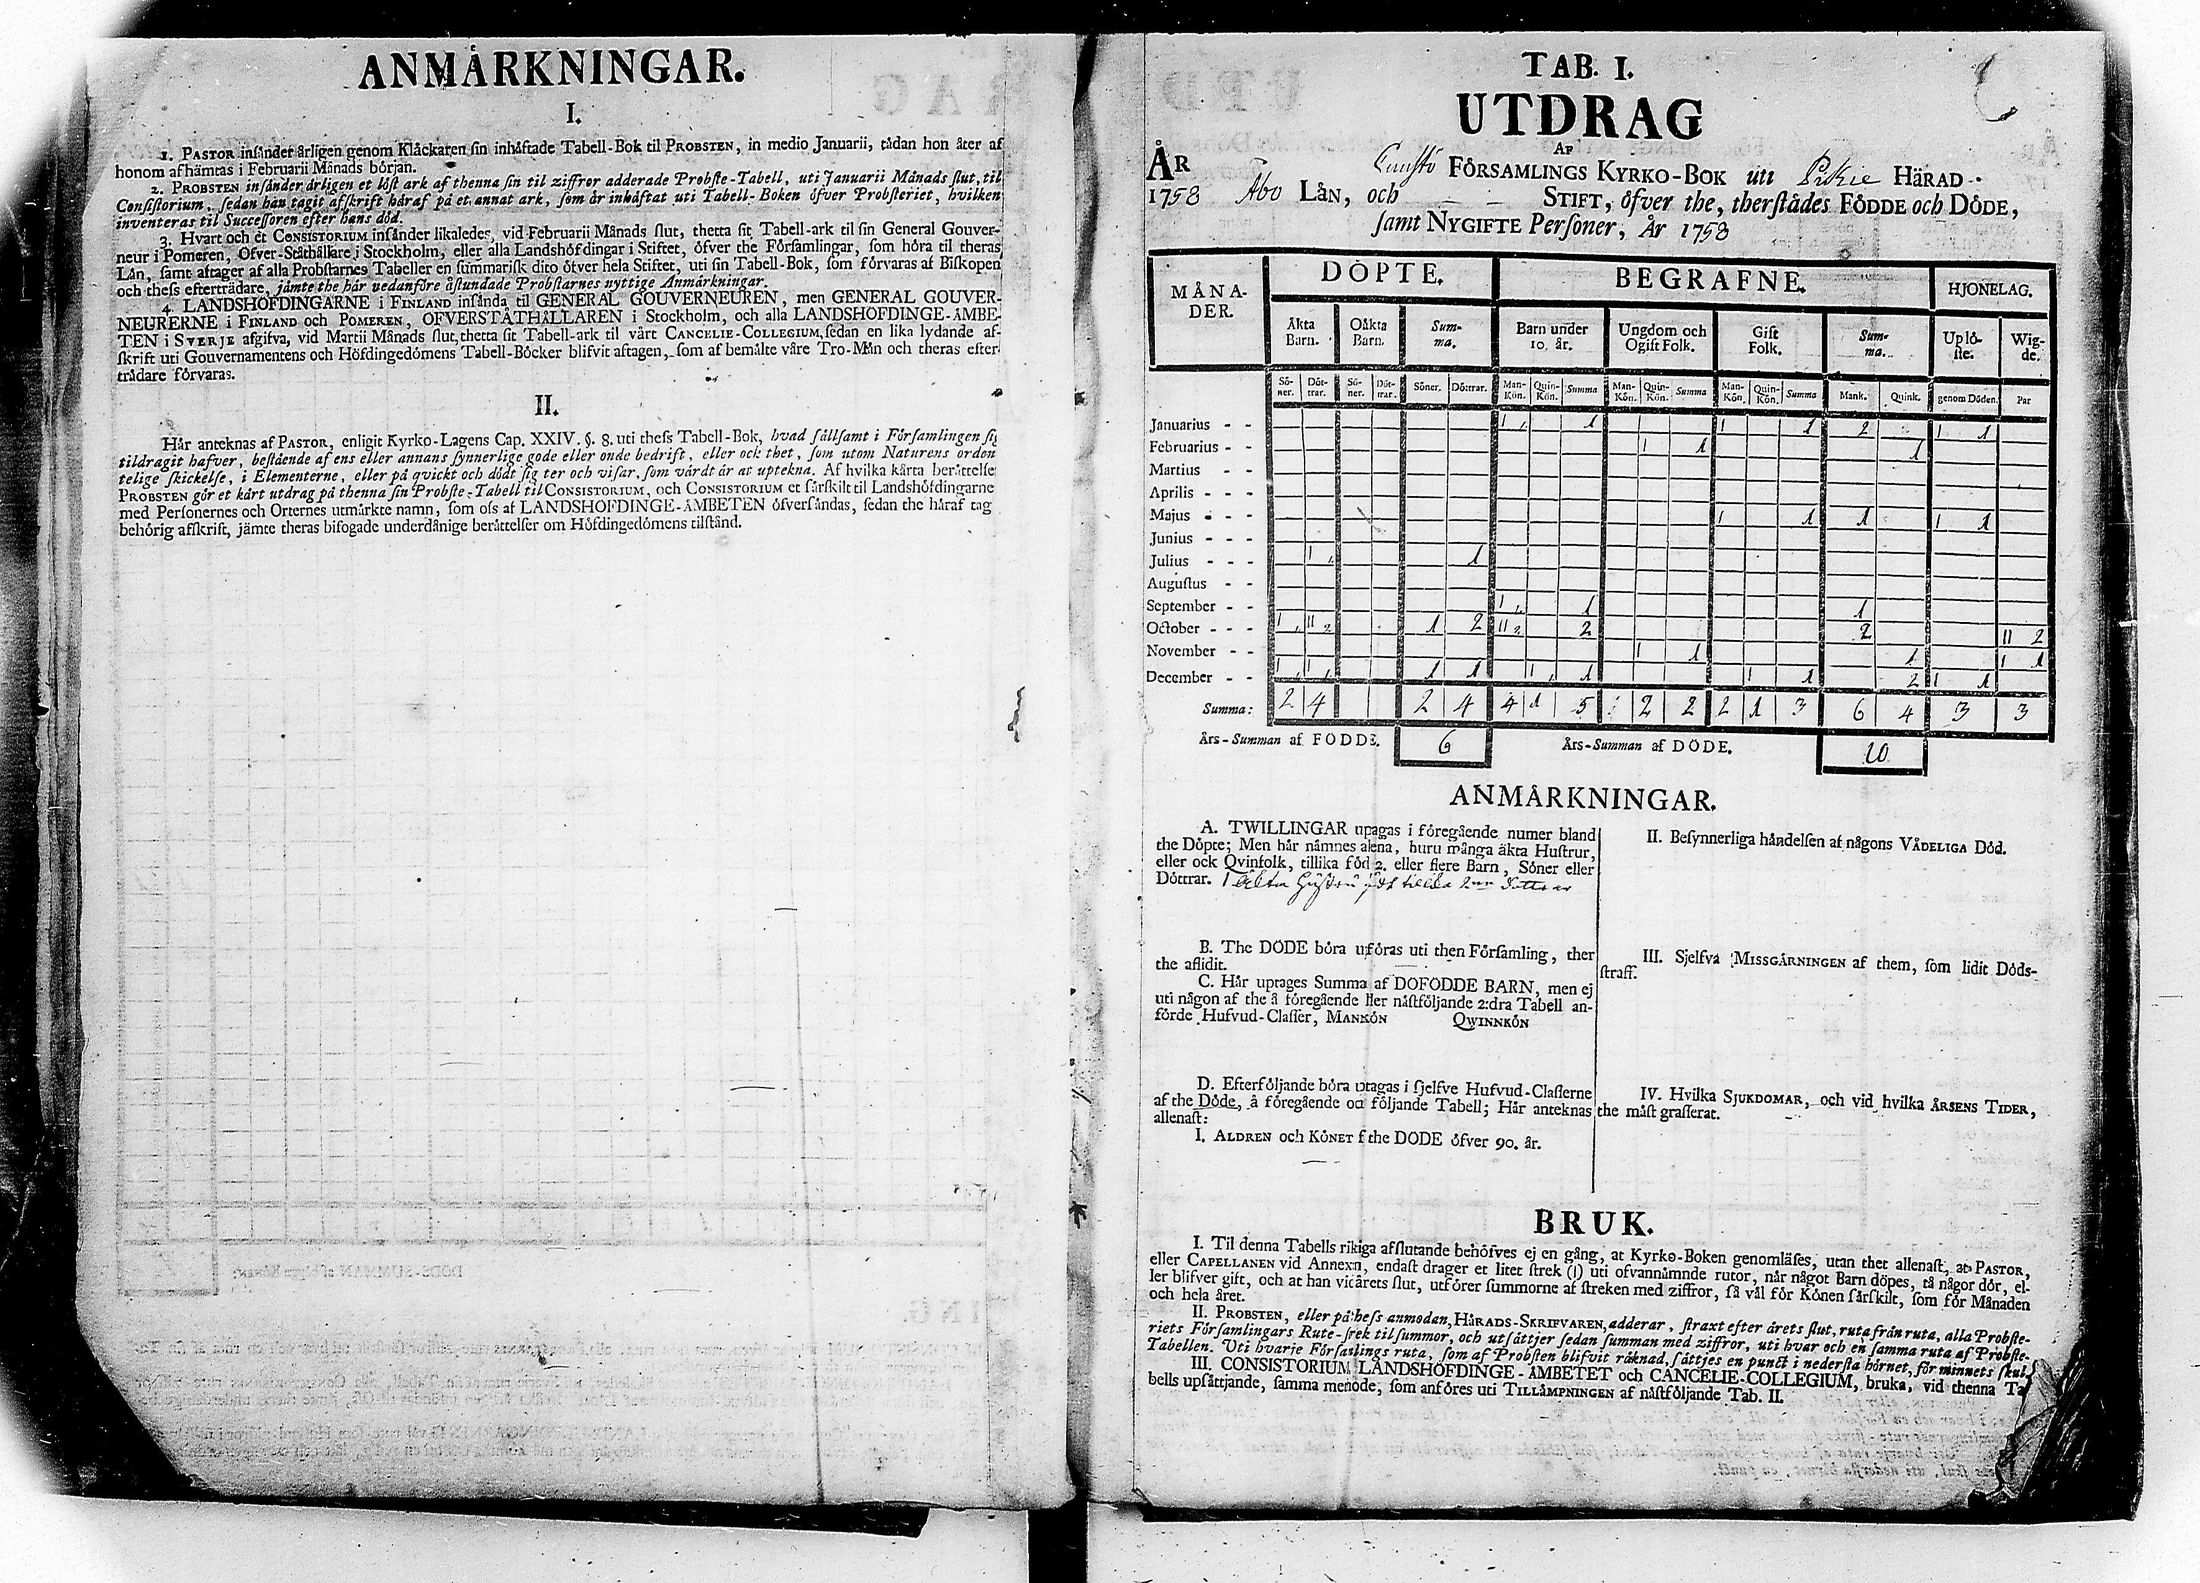 ANMÄRKNINGAR.
I.
1. PASTOR insänder årligen genom Klåckaren sin inhäftade Tabell-Bok til PROBSTEN, in medio Januarii, tådan hon åter af
honom afhämtas i Februarii Månads början.
2. PROBSTEN insänder årligen et löst ark af thenna sin til ziffror adderade Probste-Tabell, uti Januarii Månads slut, til
Consistorium, sedan han tagit afskrift håraf på et annat ark, som är inhäftat uti Tabell-Boken öfver Probsteriet, hvilken
inventeras til Successoren efter hans död.
3. Hvart och et CONSISTORIUM insänder likaledes, vid Februarii Månads slut, thetta sit Tabell-ark til sin General Gouver-
neur i Pomeren, Öfver-Ståthållare i Stockholm, eller alla Landshöfdingar i Stiftet, öfver the Församlingar, som höra til theras
Län, samt aftager af alla Probstarnes Tabeller en summarisk dito öfver hela Stiftet, uti sin Tabell-Bok, som förvaras af Biskopen
och thess efterträdare, jämte the här nedanföre åstundade Probstarnes nyttige Anmärkningar.
4. LANDSHÖFDINGARNE i FINLAND insända til GENERAL GOUVERNEUREN, men GENERAL GOUVER-
NEURERNE i FINLAND och POMEREN, ÖFVERSTÅTHÅLLAREN i Stockholm, och alla LANDSHÖFDINGE-ÄMBE-
TEN i SVERJE afgifva, vid Martii Månads slut, thetta sit Tabell-ark til vårt CANCELIE-COLLEGIUM, sedan en lika lydande af-
skrift uti Gouvernamentens och Höfdingedömens Tabell-Böcker blifvit aftagen, som af bemälte våre Tro-Män och theras efter-
trädare förvaras.
II.
Här anteknas af PASTOR, enligit Kyrko-Lagens Cap. XXIV. §. 8. uti thess Tabell-Bok, hvad sällsamt i Församlingen sig
tildragit hafver, bestående af ens eller annans synnerlige gode eller onde bedrift, eller ock thet, som utom Naturens orden
telige skickelse, i Elementerne, eller på qvickt och dödt sig ter och visar, som värdt är at uptekna. Af hvilka kårta berättelse
PROBSTEN gör et kårt utdrag på thenna sin Probste-Tabell til CONSISTORIUM, och CONSISTORIUM et särskilt til Landshöfdingarne
med Personernes och Orternes utmärkte namn, som oss af LANDSHÖFDINGE-ÄMBETEN öfversändas, sedan the håraf tag
behörig afskrift, jämte theras bifogade underdånige berättelser om Höfdingedömens tilstånd.
TAB. I.
UTDRAG
AF
ÅR FÖRSAMLINGS KYRKO-BOK uti HÄRAD
1758 Åbo LÄN, och STIFT, öfver the, therstädes FÖDDE och DÖDE,
samt NYGIFTE Personer, År 1758
MÅNA-DER. DÖPTE. BEGRAFNE. HJONELAG.
Äkta Barn. Oäkta Barn. Summa. Barn under 10. år. Ungdom och Ogift Folk. Gift Folk. Summa. Uplöste. Wigde.
Söner. Döttrar. Söner. Döttrar. Söner. Döttrar. Man-Kön. Quin-Kön. Summa Man-Kön. Quin-Kön. Summa Man-Kön. Quin-Kön. Summa Mank. Quink. genom Döden. Par
Januarius - - 1 1 1 1 2 1 1
Februarius - - 1 1 1
Martius - -
Aprilis - - -
Majus - - - 1 1 1 1 1
Junius - - -
Julius - - - 1 1
Augustus - -
September - - 1 1 1
October - - - 1 11 2 1 2 11 2 2 2 11 2
November - - 1 1 1 1 1
December - - 1 1 1 1 1 1 1 1 2 1 1
Summa: 2 4 2 4 4 1 5 2 2 2 1 3 6 4 3 3
Års-Summan af FÖDDE. 6 Års-Summan af DÖDE. 10
ANMÄRKNINGAR.
A. TWILLINGAR upagas i föregående numer bland
the Döpte; Men här nämnes alena, huru många äkta Hustrur,
eller ock Qvinfolk, tillika föd 2. eller flere Barn, Söner eller
Döttrar. 1 äkta Hustru födt tillika 2ne döttrar
B. The DÖDE böra uföras uti then Församling, ther
the aflidit.
C. Här uptages Summa af DÖFÖDDE BARN, men ej
uti någon af the å föregående ller nästföljande 2:dra Tabell an-
förde Hufvud-Classer, MANKÖN QWINNKÖN
D. Efterföljande böra utagas i sjelfve Hufvud-Classerne
af the Döde, å föregående och följande Tabell; Här anteknas
allenast:
I. ALDREN och KÖNET f the DÖDE öfver 90. år.
II. Besynnerliga händelsen af någons VÅDELIGA Död.
III. Sjelfva MISSGÄRNINGEN af them, som lidit Döds-
straff.
IV. Hvilka SJUKDOMAR, och vid hvilka ÅRSENS TIDER,
the mäst grasserat.
BRUK.
I. Til denna Tabells riktiga afslutande behöfves ej en gång, at Kyrko-Boken genomläses, utan thet allenast, at PASTOR,
eller CAPELLANEN vid Annexn, endast drager et litet strek (I) uti ofvannämnde rutor, när något Barn döpes, tå någor dör, el-
ler blifver gift, och at han vid årets slut, utförer summorne af streken med ziffror, så väl för Könen särskilt, som för Månaden
och hela året.
II. PROBSTEN, eller på thess anmodan, HÄRADS-SKRIFVAREN, adderar, straxt efter årets slut, ruta från ruta, alla Probste-
riets Församlingars Rute-strek til summor, och utsättjer sedan summan med ziffror, uti hvar och en samma ruta af Probste-
Tabellen. Uti hvarje Församlings ruta, som af Probsten blifvit räknad, sättjes en punct i nedersta hörnet, för minnets skul
III. CONSISTORIUM LANDSHÖFDINGE-ÄMBETET och CANCELIE-COLLEGIUM, bruka, vid thenna Ta
bells upsättjande, samma metode, som anföres uti TILLÄMPNINGEN af nästföljande Tab. II.